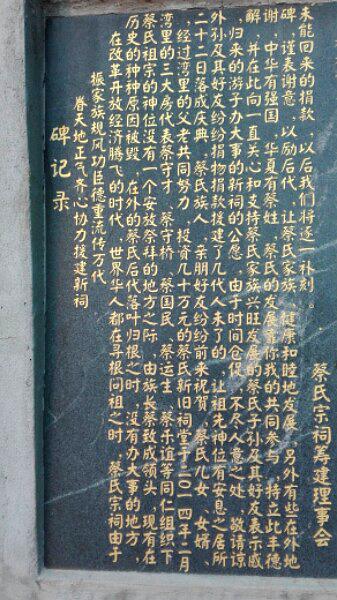 碑记录
眷天地正气齐心协力援建新祠
振家族规风功臣德重流传万代
在改革开放经济腾飞的时代,世界华人都在寻根问祖之时,蔡氏宗祠由于
历史的种种原因被毁,在外的蔡氏后代落叶归根之时,没有办大事的地方,
蔡氏祖宗的神位没有一个安放祭拜的地方之际,由族长蔡致成领头,现有在
湾里的三大房代表蔡守才、蔡守桥、蔡国民、蔡运生、蔡乐谊等同仁组织下
,经过湾里的父老共同努力,投资几十万元的蔡氏新旧祠堂于二0一四年二月
二十二日落成庆典,蔡氏族人、亲朋好友纷纷前来祝贺,蔡氏儿女、女婿、
外孙及其好友纷纷捐物捐款援建了几代人未了的、让祖先神位有安息之居所
、归来的游子办大事的新祠的公愿。由于时间仓促,不尽人意之处,敬请谅
解,并在此向一直关心和支持蔡氏家族兴旺发展的蔡氏子孙及其好友表示感
谢,中华有强国,华夏有蔡姓,蔡氏的发展靠你我的共同参与,特立此丰德
碑,谨表谢意,以励后代,让蔡氏家族,健康和睦地发展,另外有些在外地
未能回来的捐款,以后我们将逐一补刻。
蔡氏宗祠筹建理事会